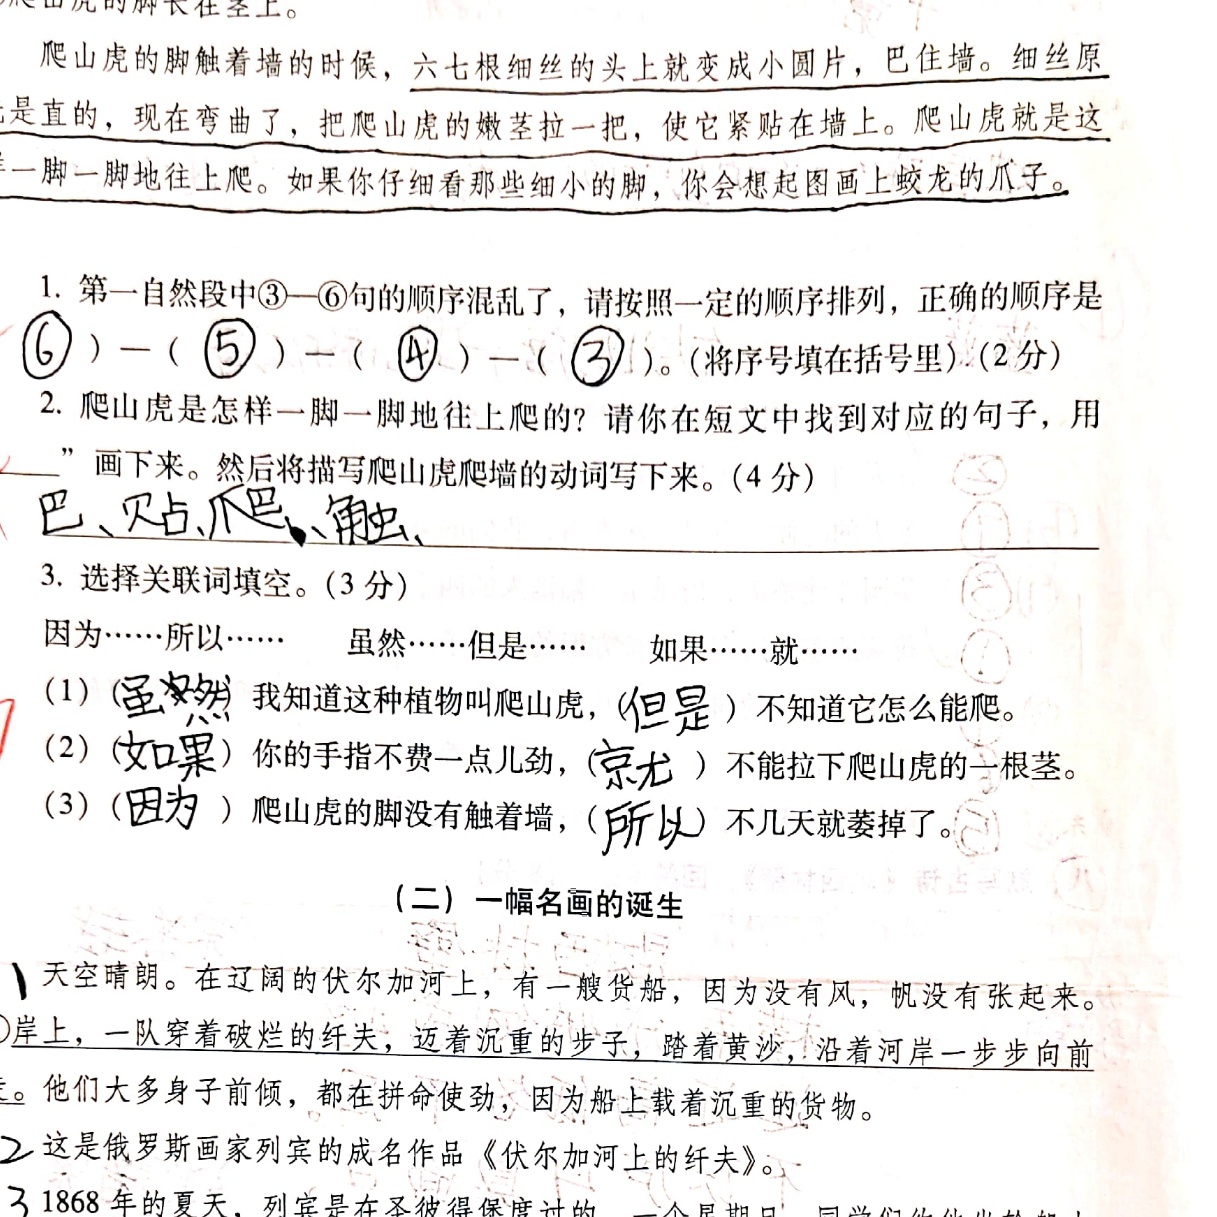 爬山虎的脚长在茎上。
爬山虎的脚触着墙的时候，六七根细丝的头上就变成小圆片，巴住墙。细丝原
是直的，现在弯曲了，把爬山虎的嫩茎拉一把，使它紧贴在墙上。爬山虎就是这
一脚一脚地往上爬。如果你仔细看那些细小的脚，你会想起图画上蛟龙的爪子。
1. 第一自然段中③—⑥句的顺序混乱了，请按照一定的顺序排列，正确的顺序是
⑥）—（⑤）—（④）—（③）。（将序号填在括号里）（2分）
2. 爬山虎是怎样一脚一脚地往上爬的？请你在短文中找到对应的句子，用
____” 画下来。然后将描写爬山虎爬墙的动词写下来。（4分）
巴、贴、爬、触、
3. 选择关联词填空。（3分）
因为……所以…… 虽然……但是…… 如果……就……
（1）（虽然）我知道这种植物叫爬山虎，（但是）不知道它怎么能爬。
（2）（如果）你的手指不费一点儿劲，（就）不能拉下爬山虎的一根茎。
（3）（因为）爬山虎的脚没有触着墙，（所以）不几天就萎掉了。
（二）一幅名画的诞生
1 天空晴朗。在辽阔的伏尔加河上，有一艘货船，因为没有风，帆没有张起来。
岸上，一队穿着破烂的纤夫，迈着沉重的步子，踏着黄沙，沿着河岸一步步向前
。他们大多身子前倾，都在拼命使劲，因为船上载着沉重的货物。
2 这是俄罗斯画家列宾的成名作品《伏尔加河上的纤夫》。
3 1868年的夏天，列宾是在圣彼得堡度过的。一个星期日，同学们约他坐轮船去